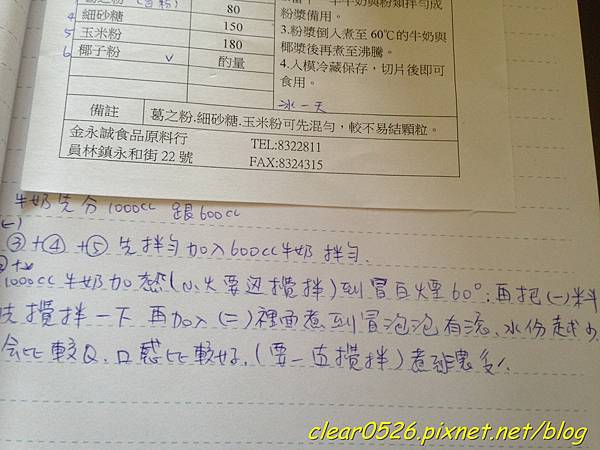 80
4 細砂糖 150
5 玉米粉 180
6 椰子粉 v 酌量
粉漿備用。
3.粉漿倒入煮至 60℃的牛奶與
椰漿後再煮至沸騰。
4.入模冷藏保存,切片後即可
食用。
冰一天
備註 葛之粉.細砂糖.玉米粉可先混勻,較不易結顆粒。
金永誠食品原料行 TEL:8322811
員林鎮永和街 22 號 FAX:8324315
牛奶先分1000cc 跟600cc
(一)
③+④+⑤ 先拌勻加入600cc牛奶 拌勻.
1000cc 牛奶加熱(小火要邊攪拌)到冒白煙60°.再把(一)料
先攪拌一下 再加入(二)裡面煮到冒泡泡有流.水份越少
會比較Q.口感比較好.(要一直攪拌)煮
clear0526.pixnet.net/blog